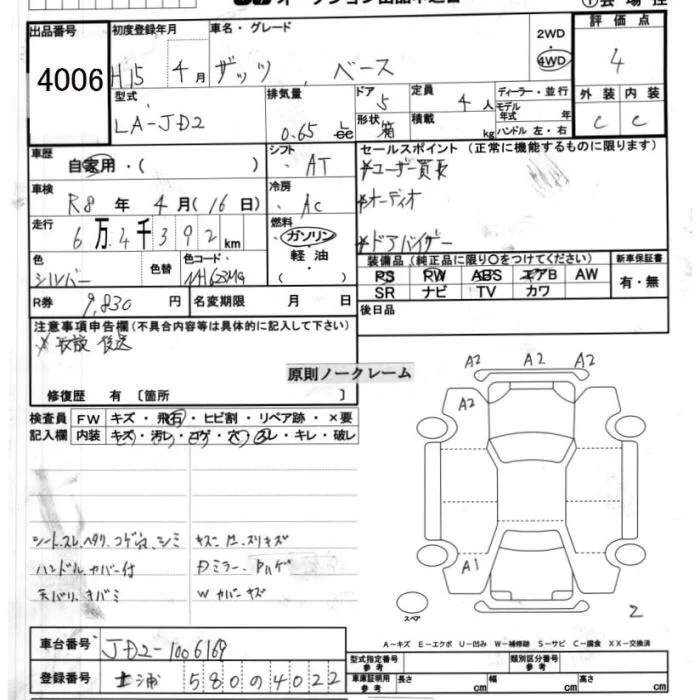 出品番号
4006
初度登録年月
H15 4月
車名・グレード
ザッツ ベース
2WD
4WD
評価点
4
外装 内装
C C
型式
LA-JD2
排気量
0.65 cc
ドア
5
形状
箱
定員
4人
積載
kg
ディーラー・並行
モデル年式 年
ハンドル 左・右
車歴
自家用・( )
シフト
AT
セールスポイント (正常に機能するものに限ります)
ユーザー買取
オーディオ
ドアバイザー
車検
R8 年 4月(16日)
冷房
AC
走行
6万4千392km
燃料
ガソリン
軽油
・( )
色
シルバー
色替
色コード
NH623M4
装備品(純正品に限り○をつけてください)
PS PW ABS エアB AW
SR ナビ TV カワ
新車保証書
有・無
R券
9,830円
名変期限 月 日
後日品
注意事項申告欄(不具合内容等は具体的に記入して下さい)
後送
原則ノークレーム
修復歴 有 〔箇所 〕
検査員記入欄
FW キズ・飛石・ヒビ割・リペア跡・×要
内装 キズ・汚レ・コゲ・穴・スレ・キレ・破レ
シートスレ、ヘタリ、コゲ穴、シミ
ハンドルカバー付
天バリ、キバミ
Dミラー
Wカバーキズ
A2 A2 A2
A2
A1
スペア
2
A-キズ E-エクボ U-凹み W-補修跡 S-サビ C-腐食 XX-交換済
車台番号
JD2-1006169
登録番号
土浦 580 0 4022
型式指定番号 参考
類別区分番号 参考
車庫証明用 参考
長さ cm 幅 cm 高さ cm